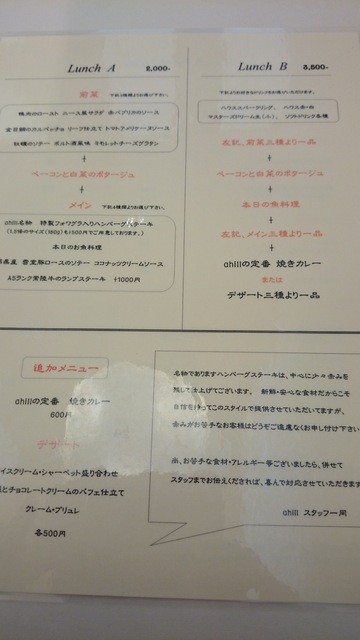 Lunch A 2,000-
前菜 下記より一品お選び下さい。
鴨肉のロースト ニース風サラダ 赤パプリカのソース
トマトアメリケーヌソース
牡蠣のソテー ポルト酒風味 ミモレットチーズグラタン
+
ベーコンと白菜のポタージュ
+
メイン
ahillの名物 特製フォワグラ入りハンバーグステーキ
(1.5倍のサイズ(180g)も+500円でご用意しております。)
本日のお魚料理
豚肩ロースのソテー ココナッツクリームソース
A5ランク常陸牛のランプステーキ +1000円
Lunch B 3,500-
ハウススパークリング、 ハウス赤・白
ソフトドリンク各種
左記、前菜三種より一品
+
ベーコンと白菜のポタージュ
+
本日のお魚料理
+
左記、メイン三種より一品
+
ahillの定番 焼きカレー
または
デザート三種より一品
追加メニュー
ahillの定番 焼きカレー
600円
デザート
アイスクリーム・シャーベット盛り合わせ
とチョコレートクリームのパフェ仕立て
クレーム・ブリュレ
各500円
名物でありますハンバーグステーキは、中心に少々赤みを
残して仕上げてございます。 新鮮・安心な食材だからこそ
自信を持ってこのスタイルで提供させていただいてますが、
赤みがお苦手なお客様はどうぞご遠慮なくお申し付け下さい
尚、お苦手な食材・アレルギー等ございましたら、併せて
スタッフまでお伝えくだされば、喜んで対応させていただきます
ahill スタッフ一同